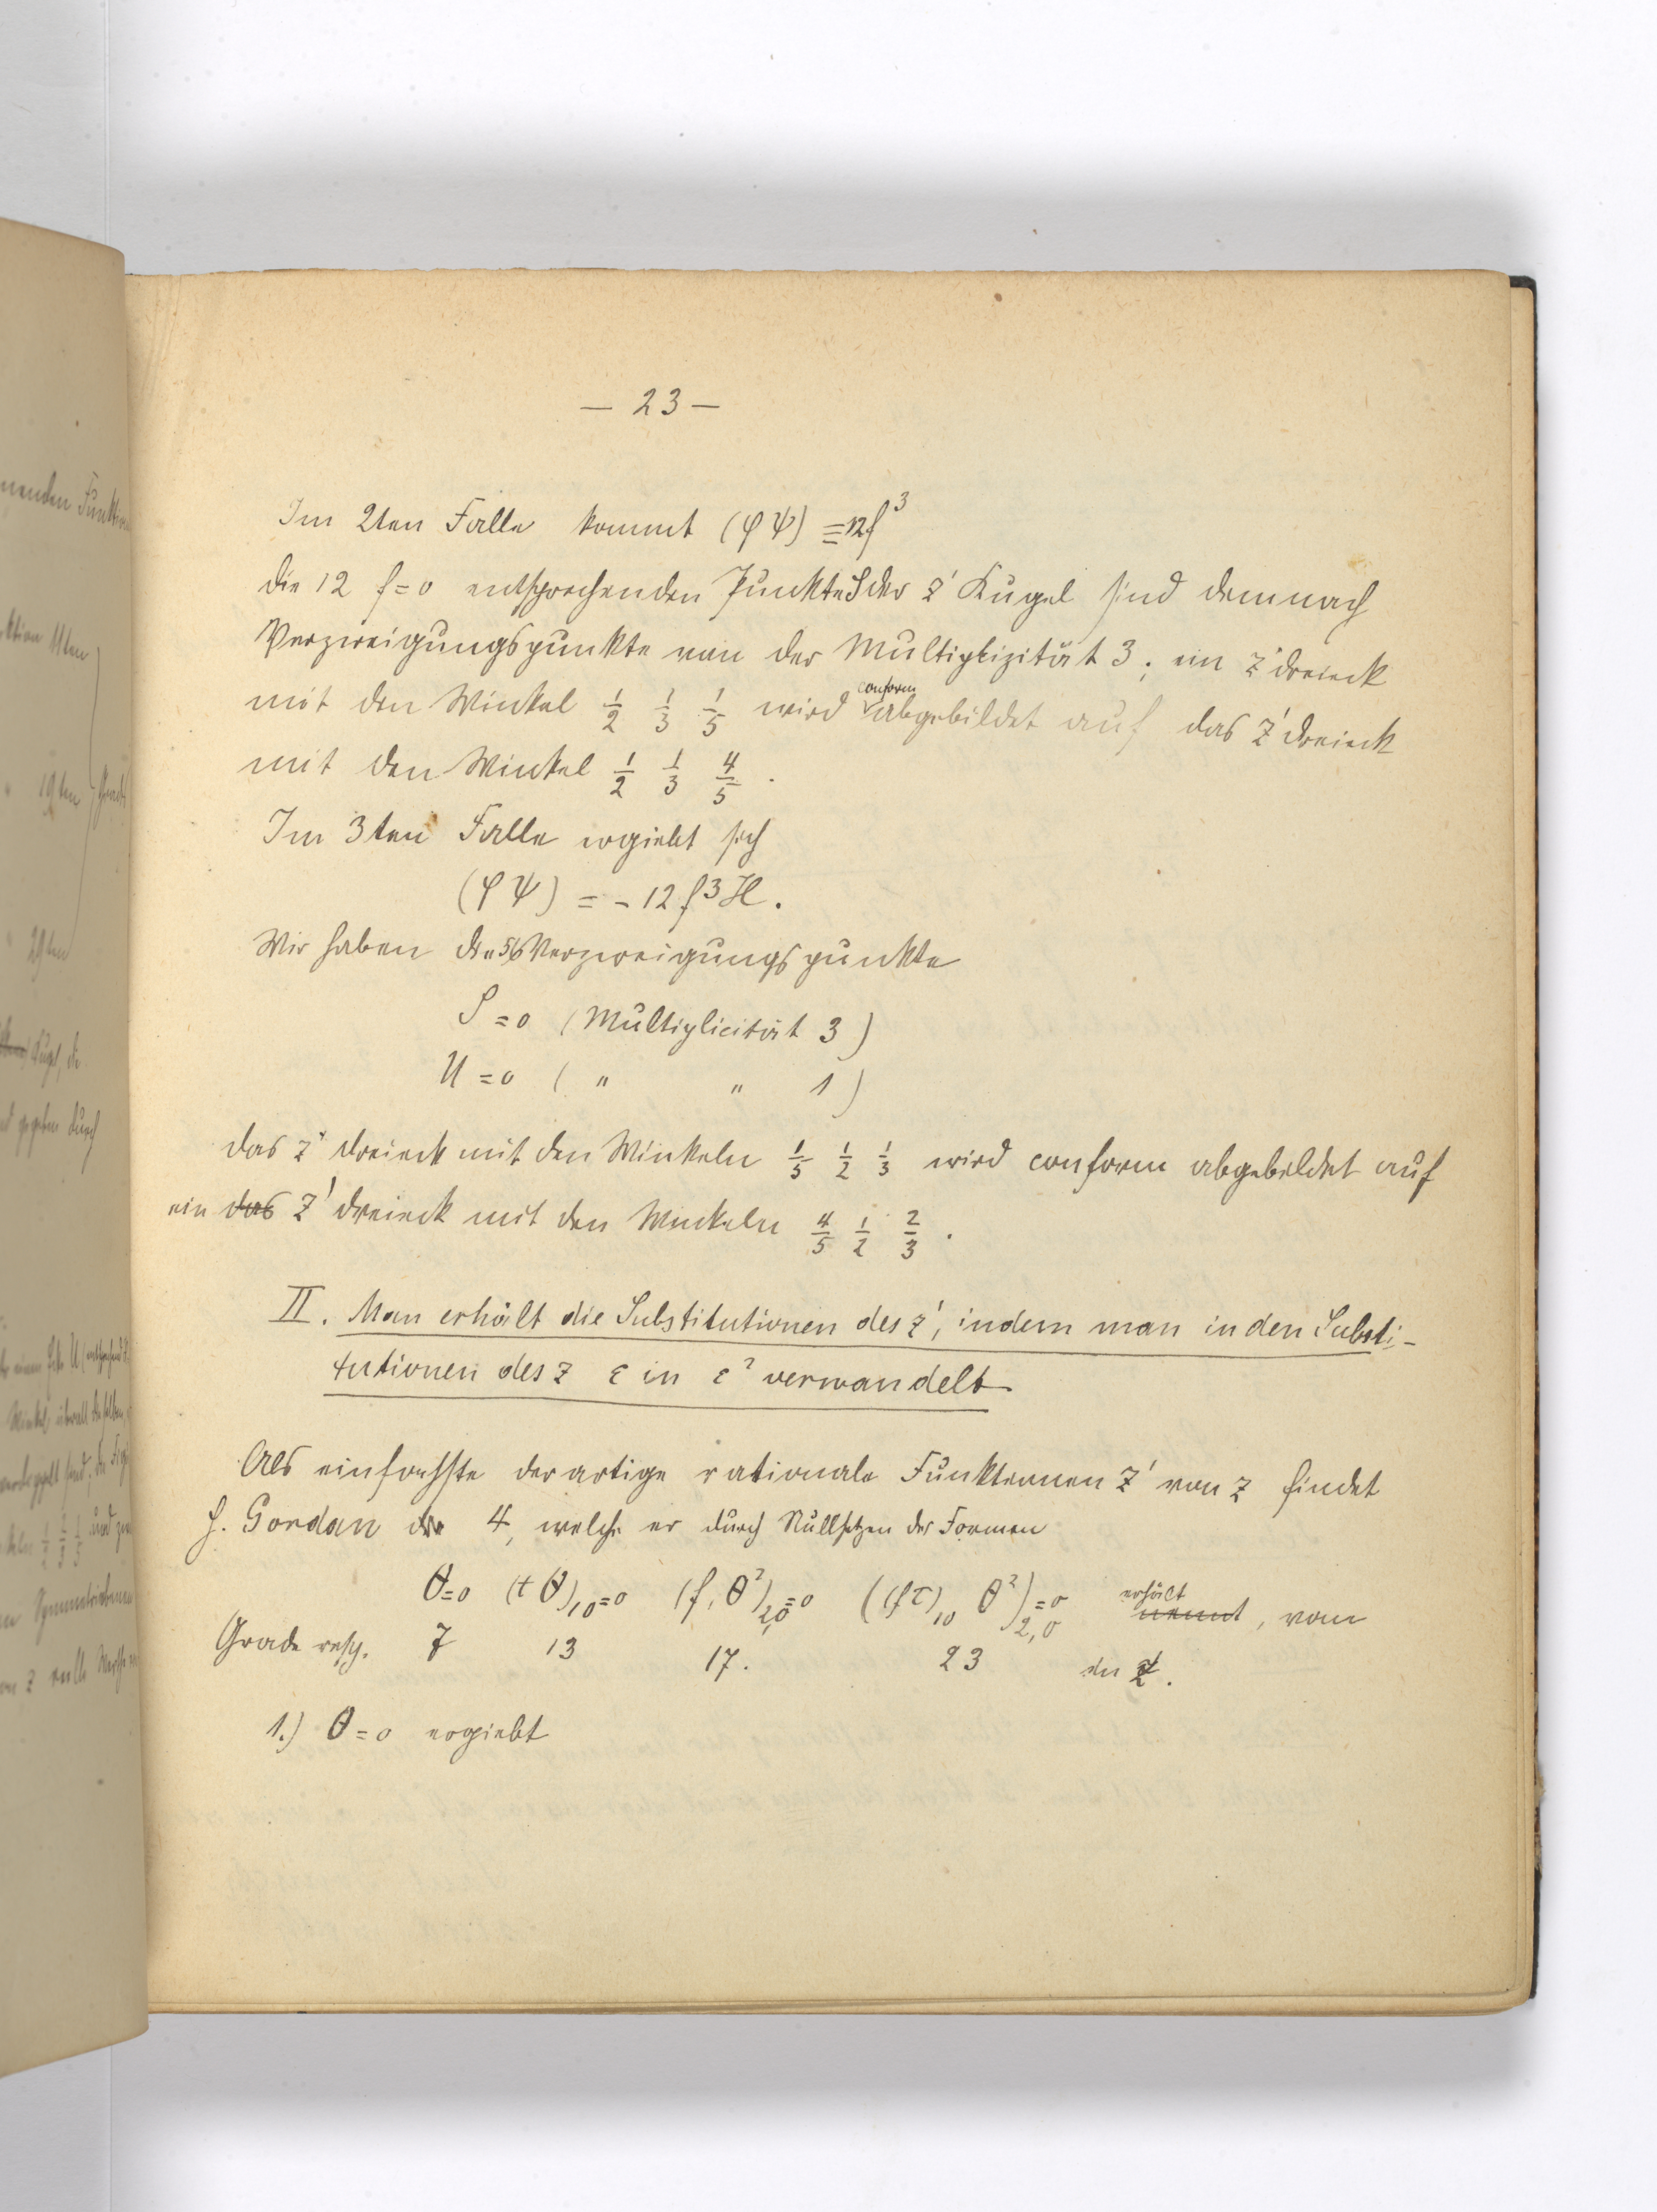 — 23 —
Im 2ten Falle kommt (φ ψ) = 12f³
die 12 f=0 entsprechenden Punkte der z' Kugel sind demnach
Verzweigungspunkte von der Multiplizität 3; ein z dreieck
mit den Winkel 1/2 1/3 1/5 wird conform abgebildet auf das z' dreieck
mit den Winkel 1/2 1/3 4/5.
Im 3ten Falle ergiebt sich
(φ ψ) = - 12 f³ H.
Wir haben Verzweigungspunkte
f = 0 (Multiplicität 3)
H = 0 ( " " 1)
das z dreieck mit den Winkeln 1/5 1/2 1/3 wird conform abgebildet auf
ein das z' dreieck mit den Winkeln 4/5 1/2 2/3.
II. Man erhält die Substitutionen des z', indem man in den Substi-
tutionen des z ε in ε² verwandelt
Als einfachste derartige rationale Funktionen z' von z findet
H. Gordan die 4, welche er durch Nullsetzen der Formen
θ=0 (t θ)₁₀=0 (f, θ²)₂,₀=0 ((fτ)₁₀ θ²)₂,₀=0 erhält nennt, vom
Grade resp. 7 13 17. 23 in z.
1.) θ=0 ergiebt